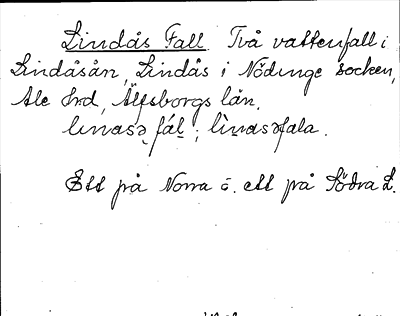 Lindås Fall. Två vattenfall i
Lindåsån, Lindås i Nödinge socken,
Ale hrd, Älfsborgs län.
linasə fál ; lìnasəfala.
Ett på Norra o. ett på Södra L.